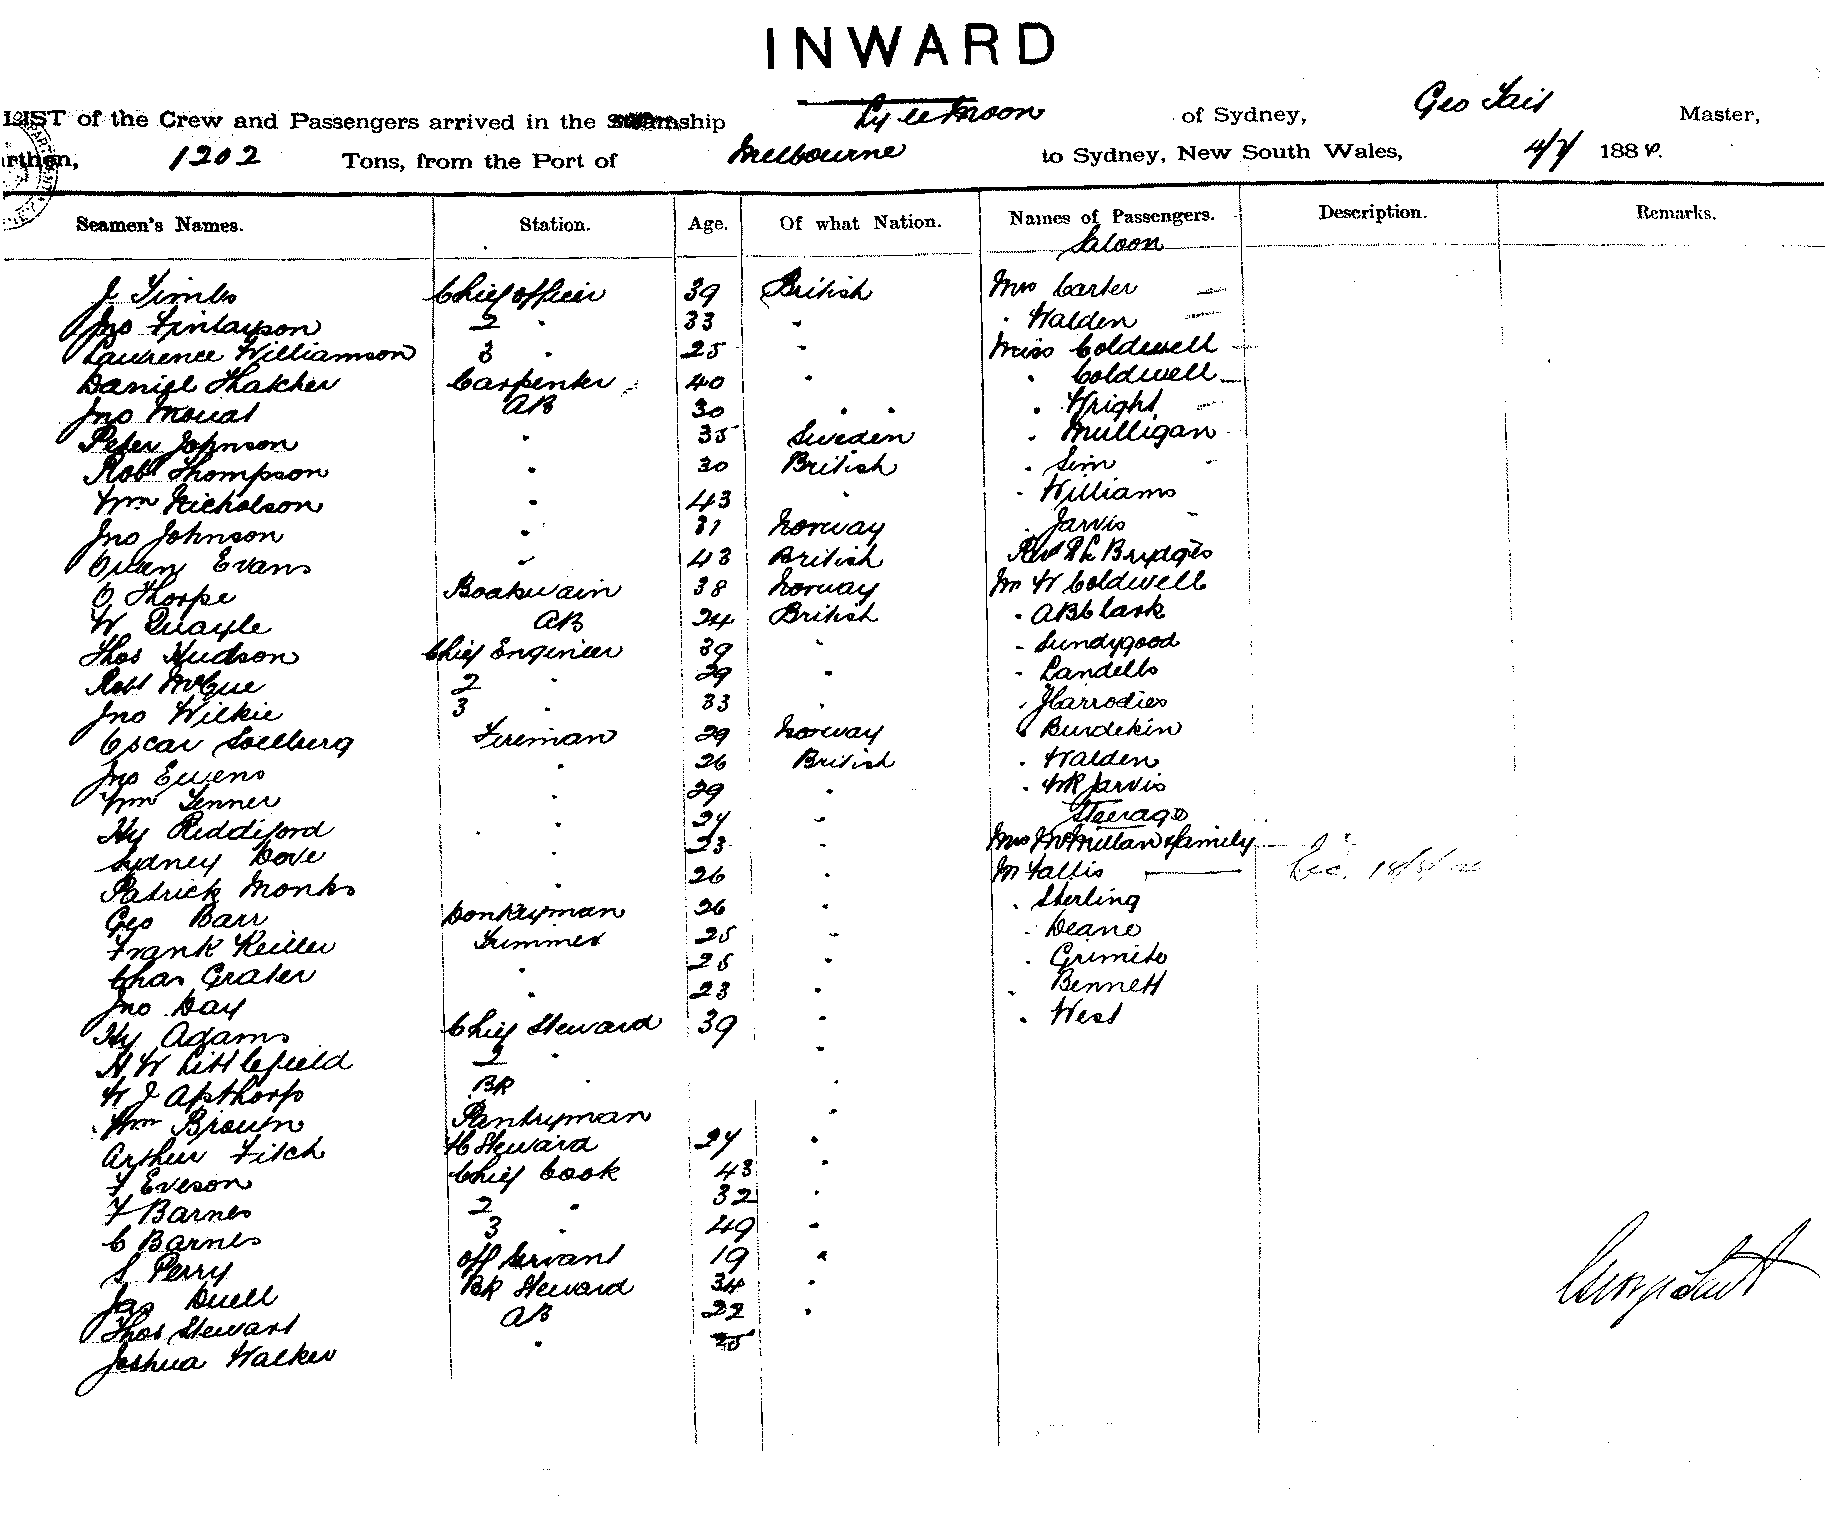 INWARD
LIST of the Crew and Passengers arrived in the Steamship Ly ee Moon of Sydney, Geo Tait Master,
Burthen, 1202 Tons, from the Port of Melbourne to Sydney, New South Wales, 188
Seamen's Names. Station. Age. Of what Nation. Names of Passengers. Description. Remarks.
Saloon
J Timbs Chief officer 39 British Mrs Carter —
Jno Finlayson 2 " 33 " " Walden —
Laurence Williamson 3 " 25 " Miss Coldwell —
Daniel Thatcher Carpenter 40 " " Coldwell —
Jno Mouat AB 30 " " " Wright —
Peter Johnson " 35 Sweden " Mulligan
Robt Thompson " 30 British " Sim
Wm Nicholson " 43 " " Williams
Jno Johnson " 31 Norway " Jarvis
Owen Evans " 43 British Revd Bridges
O Thorpe Boatswain 38 Norway Mr W Coldwell
W Quayle AB 24 British " AB Clark
Thos Hudson Chief Engineer 39 " " Sundygood
Robt McCue 2 " 29 " " Landells
Jno Wilkie 3 " 33 " " Harrodies
Oscar Soelberg Fireman 29 Norway " Burdekin
Jno Ewens " 26 British " Walden
Wm Jenner " 29 " " WR Jarvis
Steerage
Hy Riddiford " 27 " Mrs McMillan & family
Sydney Dove " 23 " Mr Fallis —
Patrick Monks " 26 " Sterling
Geo Barr Donkeyman 26 " " Deane
Frank Keiller Trimmer 25 " " Grimes
Chas Grater " 25 " " Bennett
Jno Day " 23 " " West
Hy Adams Chief Steward 39 "
H W Littlefield 2 " "
W J Apsthorp BR " "
Wm Brown Pantryman "
Arthur Fitch Steward 27 "
F Eveson Chief Cook 43 "
F Barnes 2 " 32 "
C Barnes 3 " 49 "
S Perry off Servant 19 "
Jas Duell BR Steward 34 "
Thos Stewart AB 22 "
Joshua Walker " 25
George Tait